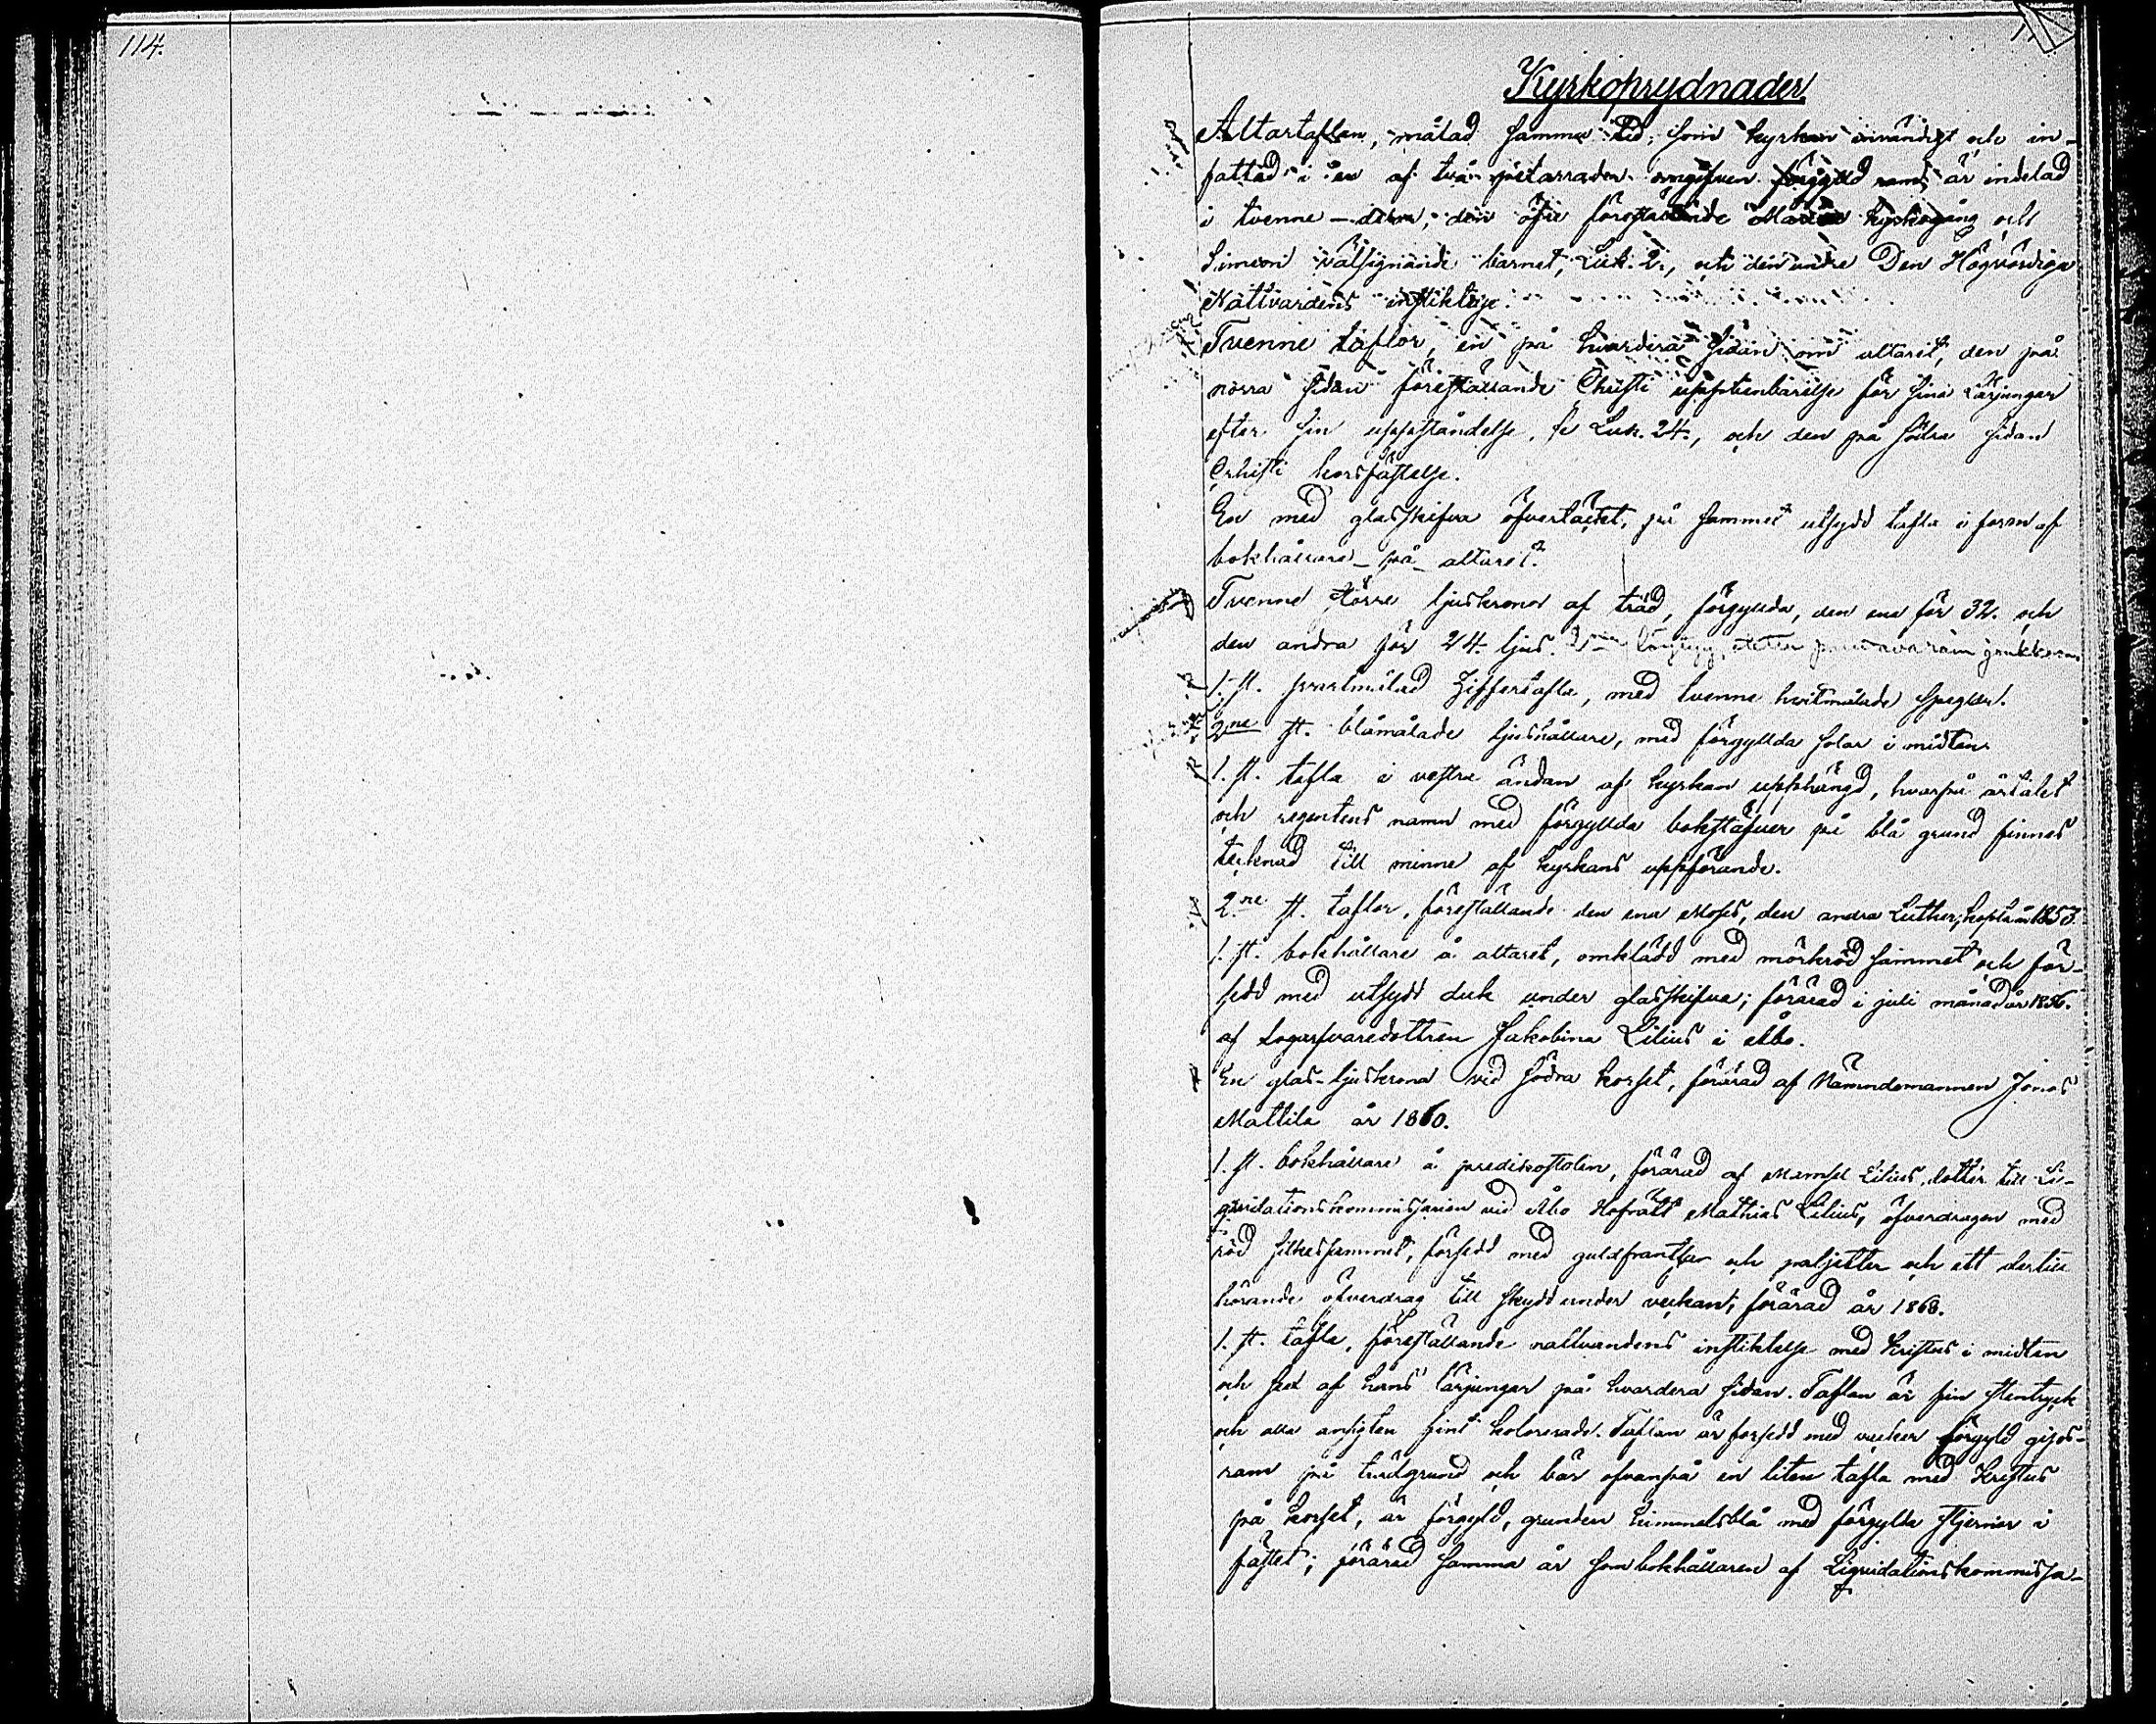 114.
Kyrkoprydnader
Altartaflan, målad samma tid, som kyrkan invändigt och in-
fattad i en af två omgifven förgylld ram, är indelad
i tvenne delar, den öfre föreställande Mariæ kyrkogång och
Simeon välsignande barnet, Luk. 2., och den undre Den Högvördiga
Nattvardens instiktelse.
Tvenne taflor, en på hvardera sidan om altaret, den på
norra sidan föreställande Christi uppenbarelse för sina Lärjungar
efter sin uppståndelse, se Luk. 24., och den på södra sidan
Christi korsfästelse.
En med glasskifva öfvertäckt, på sammet utsydd tafla i form af
bokhållare - på - altaret.
Tvenne större ljuskronor af träd, förgyllda, den ena för 32. och
den andra för 24. ljus.
1. st. svartmålad Ziffertafla, med tvenne hvitmålade speglar.
2ne st. blåmålade ljushållare, med förgyllda solar i midten.
1. st. tafla i vestra ändan af kyrkan upphängd, hvarpå årtalet
och regentens namn med förgyllda bokstäfver på blå grund finnes
tecknad till minne af kyrkans uppförande.
2ne st. taflor, föreställande den ena Moses, den andra Luther, köpta år 1853.
1. st. bokhållare å altaret, omklädd med mörkröd sammet och för-
sedd med utsydd duk under glasskifva; förärad i juli månad år 1856.
af Logarfvaredottren Jakobina Lilius i Åbo.
En glas-ljuskrona vid södra korset, förärad af Nämndemannen Jonas
Mattila år 1860.
1. st. bokhållare å predikostolen, förärad af Mamsel Lilius, dotter till Li-
qvidationskommissarien vid Åbo Hofrätt Mathias Lilius, öfverdragen med
röd silkessammet, försedd med guldfrantsar och paljetter och ett dertill
hörande öfverdrag till skydd under veckan; förärad år 1868.
1. st. tafla, föreställande nattvardens instiktelse med Kristus i midten
och sex af hans lärjungar på hvardera sidan. Taflan är fin stentryck
och alla ansigten fint kolorerade. Taflan är försedd med vacker förgyld gips-
ram på trädgrund och bär ofvanpå en liten tafla med Kristus
på korset, är förgyld, grunden himmelsblå med förgylda stjernor i
fästet; förärad samma år som bokhållaren af Liqvidationskommissa-